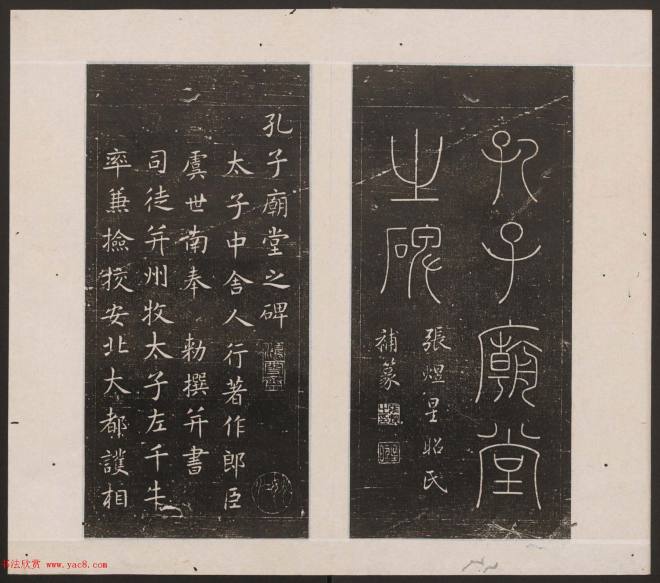 孔子廟堂
之碑
張煜星昭氏
補篆
孔子廟堂之碑
太子中舍人行著作郎臣
虞世南奉 勅撰并書
司徒并州牧太子左千牛
率兼撿挍安北大都護相
书法欣赏 www.yac8.com